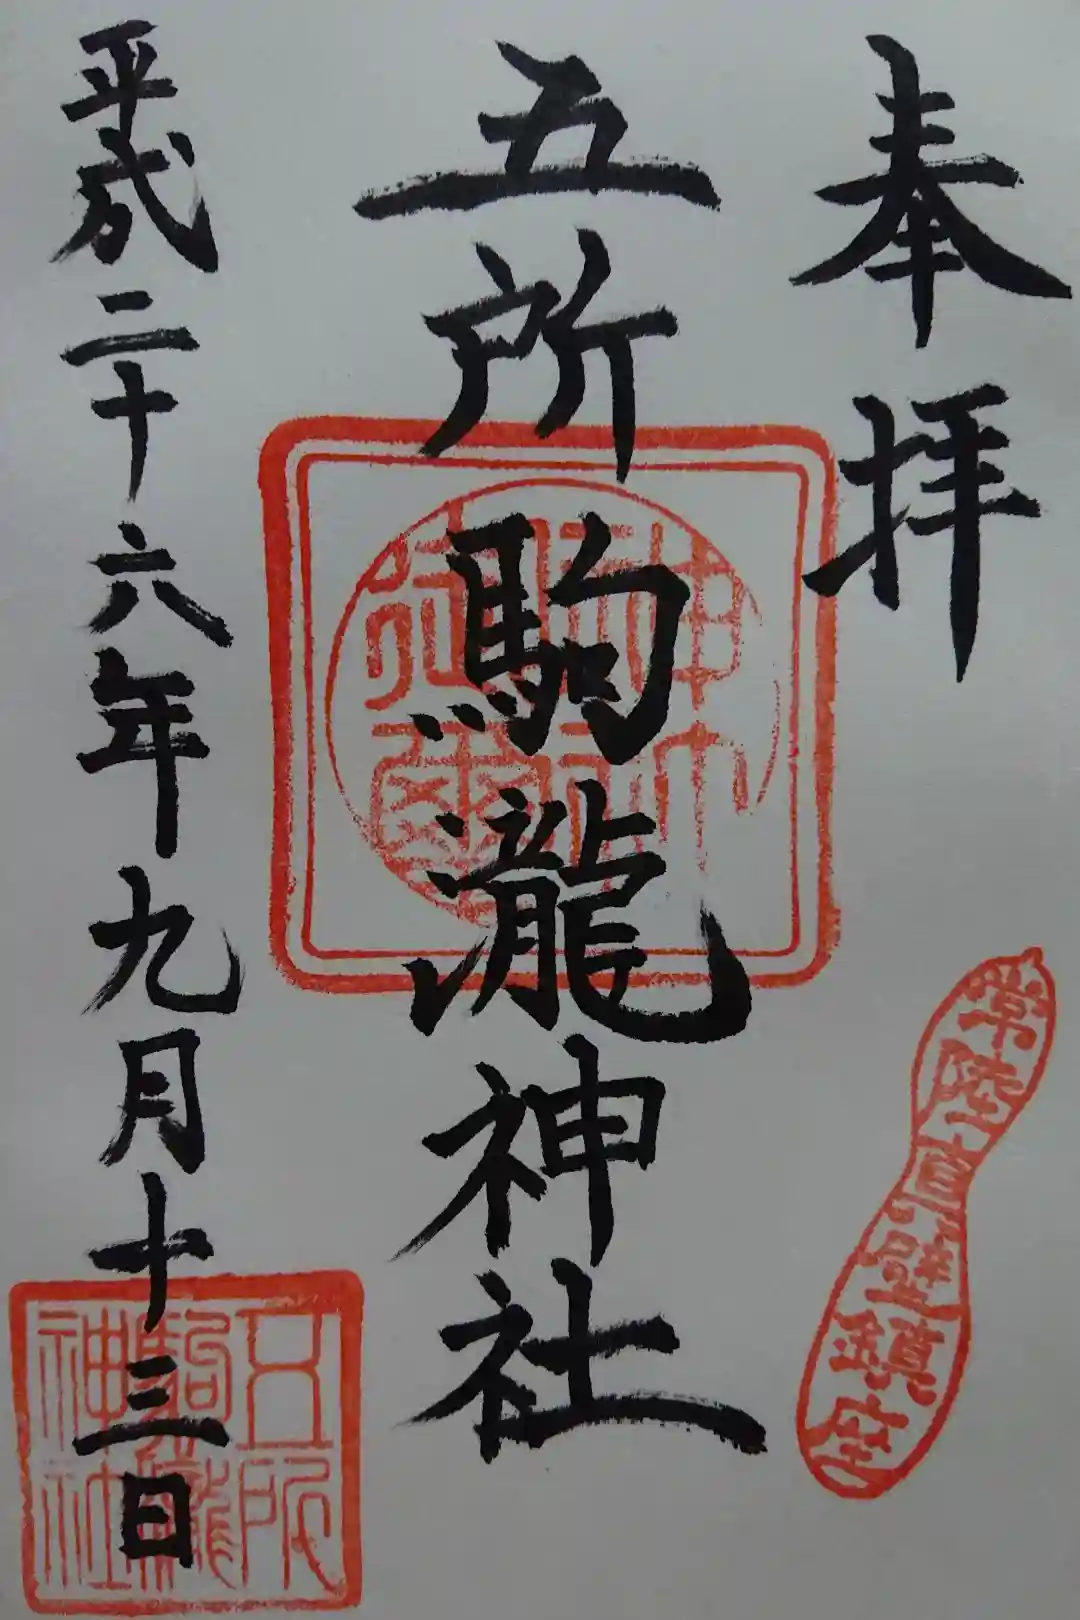 奉拝
常陸真壁鎮座
五所駒瀧神社
平成二十六年九月十三日
五所駒瀧神社